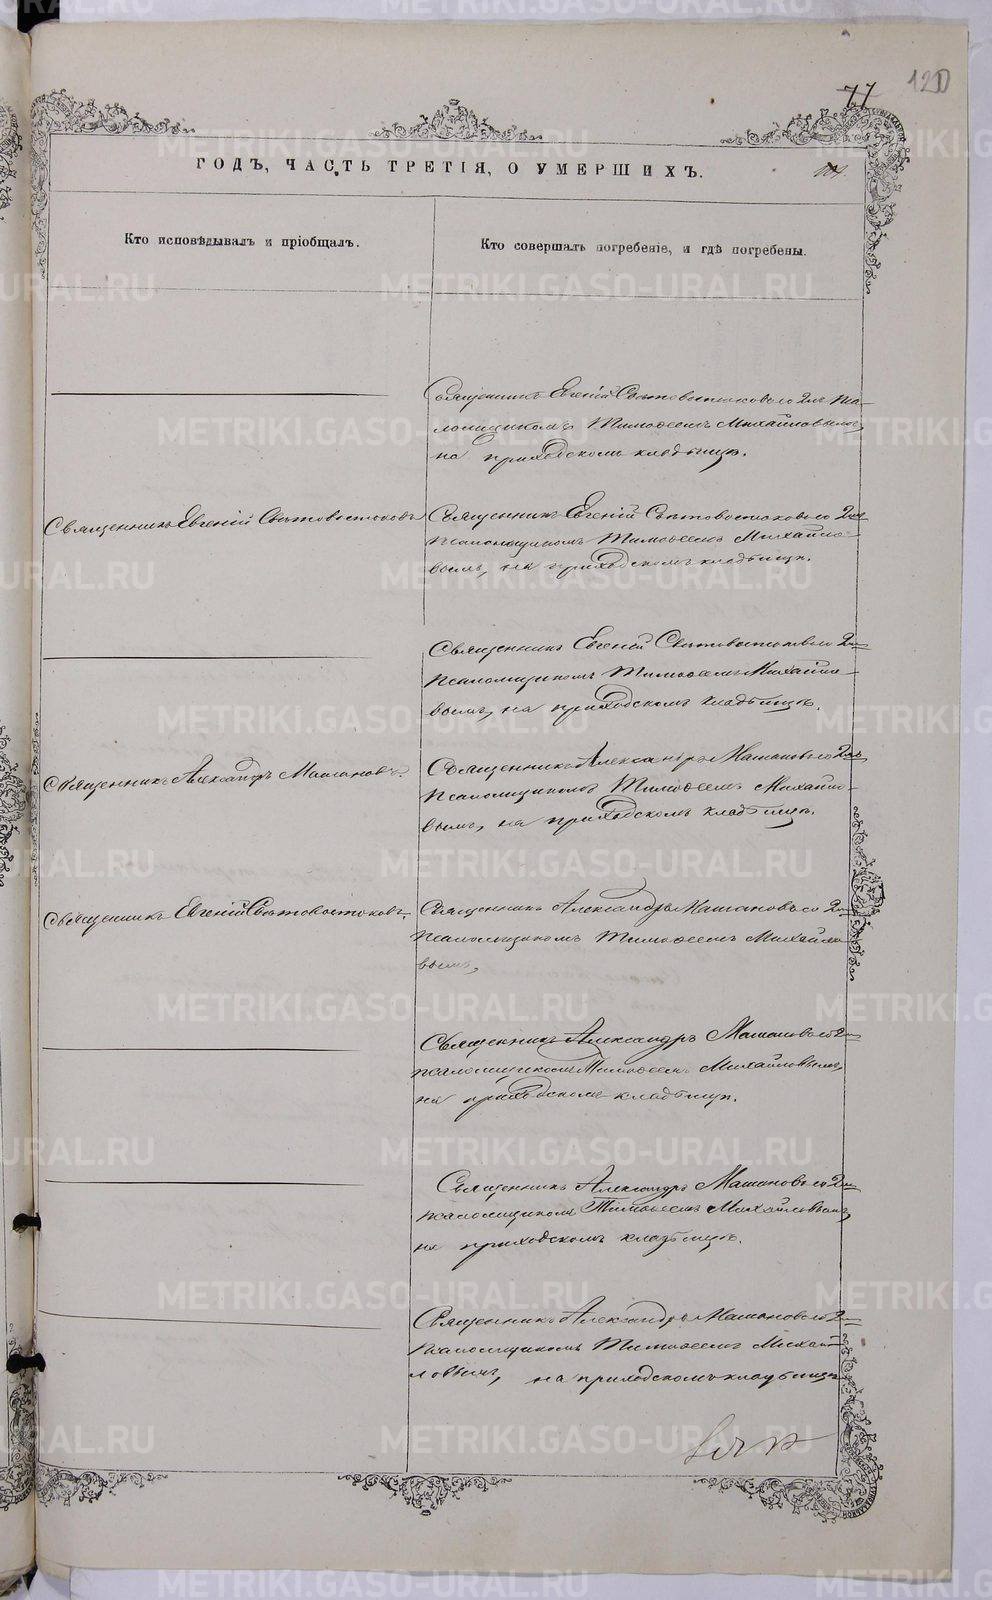 77
120
ГОДЪ, ЧАСТЬ ТРЕТІЯ, О УМЕРШИХЪ.
Кто исповѣдывалъ и пріобщалъ.
Кто совершалъ погребеніе, и гдѣ погребены.
Священникъ Евгеній Свѣтовостоковъ со 2мъ пса-
ломщикомъ Тимоѳеемъ Михайловымъ,
на приходскомъ кладбищѣ.
Священникъ Евгеній Свѣтовостоковъ
Священникъ Евгеній Свѣтовостоковъ со 2мъ
псаломщикомъ Тимоѳеемъ Михайло-
вымъ, на приходскомъ кладбищѣ.
Священникъ Евгеній Свѣтовостоковъ со 2мъ
псаломщикомъ Тимоѳеемъ Михайло-
вымъ, на приходскомъ кладбищѣ.
Священникъ Александръ Мамановъ.
Священникъ Александръ Мамановъ со 2мъ
псаломщикомъ Тимоѳеемъ Михайло-
вымъ, на приходскомъ кладбищѣ.
Священникъ Евгеній Свѣтовостоковъ.
Священникъ Александръ Мамановъ со 2мъ
псаломщикомъ Тимоѳеемъ Михайло-
вымъ,
Священникъ Александръ Мамановъ со 2мъ
псаломщикомъ Тимоѳеемъ Михайловымъ,
на приходскомъ кладбищѣ.
Священникъ Александръ Мамановъ со 2мъ
псаломщикомъ Тимоѳеемъ Михайловымъ,
на приходскомъ кладбищѣ.
Священникъ Александръ Мамановъ со 2мъ
псаломщикомъ Тимоѳеемъ Михай-
ловымъ, на приходскомъ кладбищѣ
METRIKI.GASO-URAL.RU